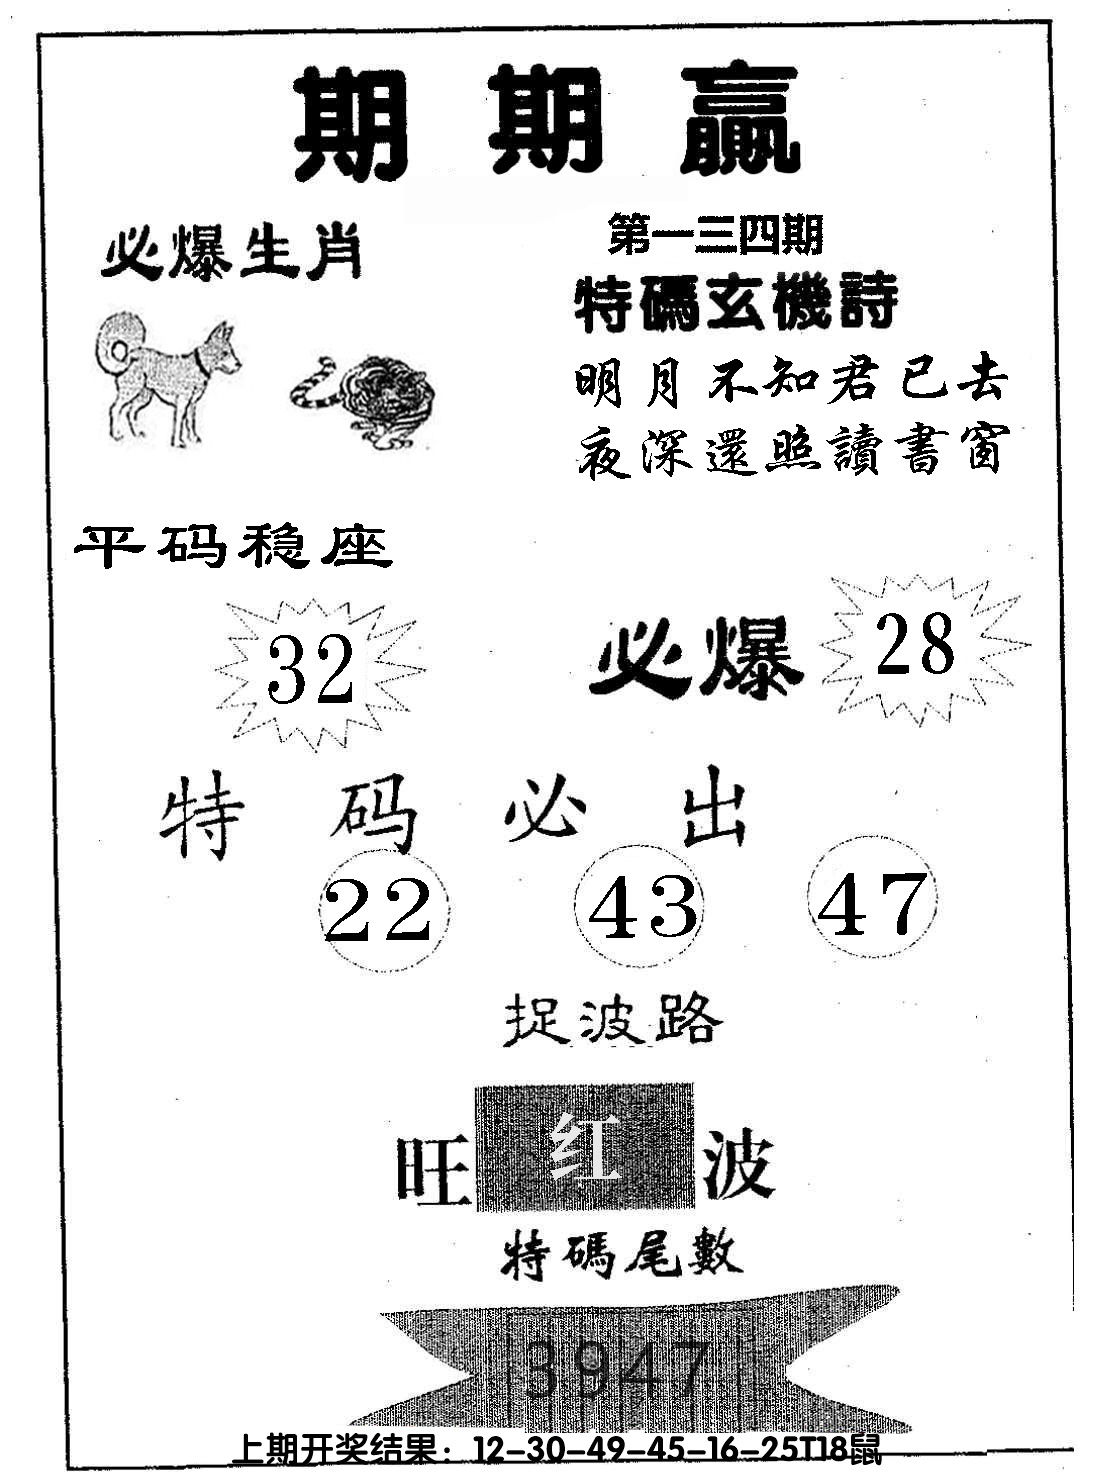 期期赢
必爆生肖
第一三四期
特碼玄機詩
明月不知君已去
夜深還照讀書窗
平码稳座
32
必爆
28
特码必出
22 43 47
捉波路
旺红波
特碼尾數
3947
上期开奖结果：12-30-49-45-16-25T18鼠